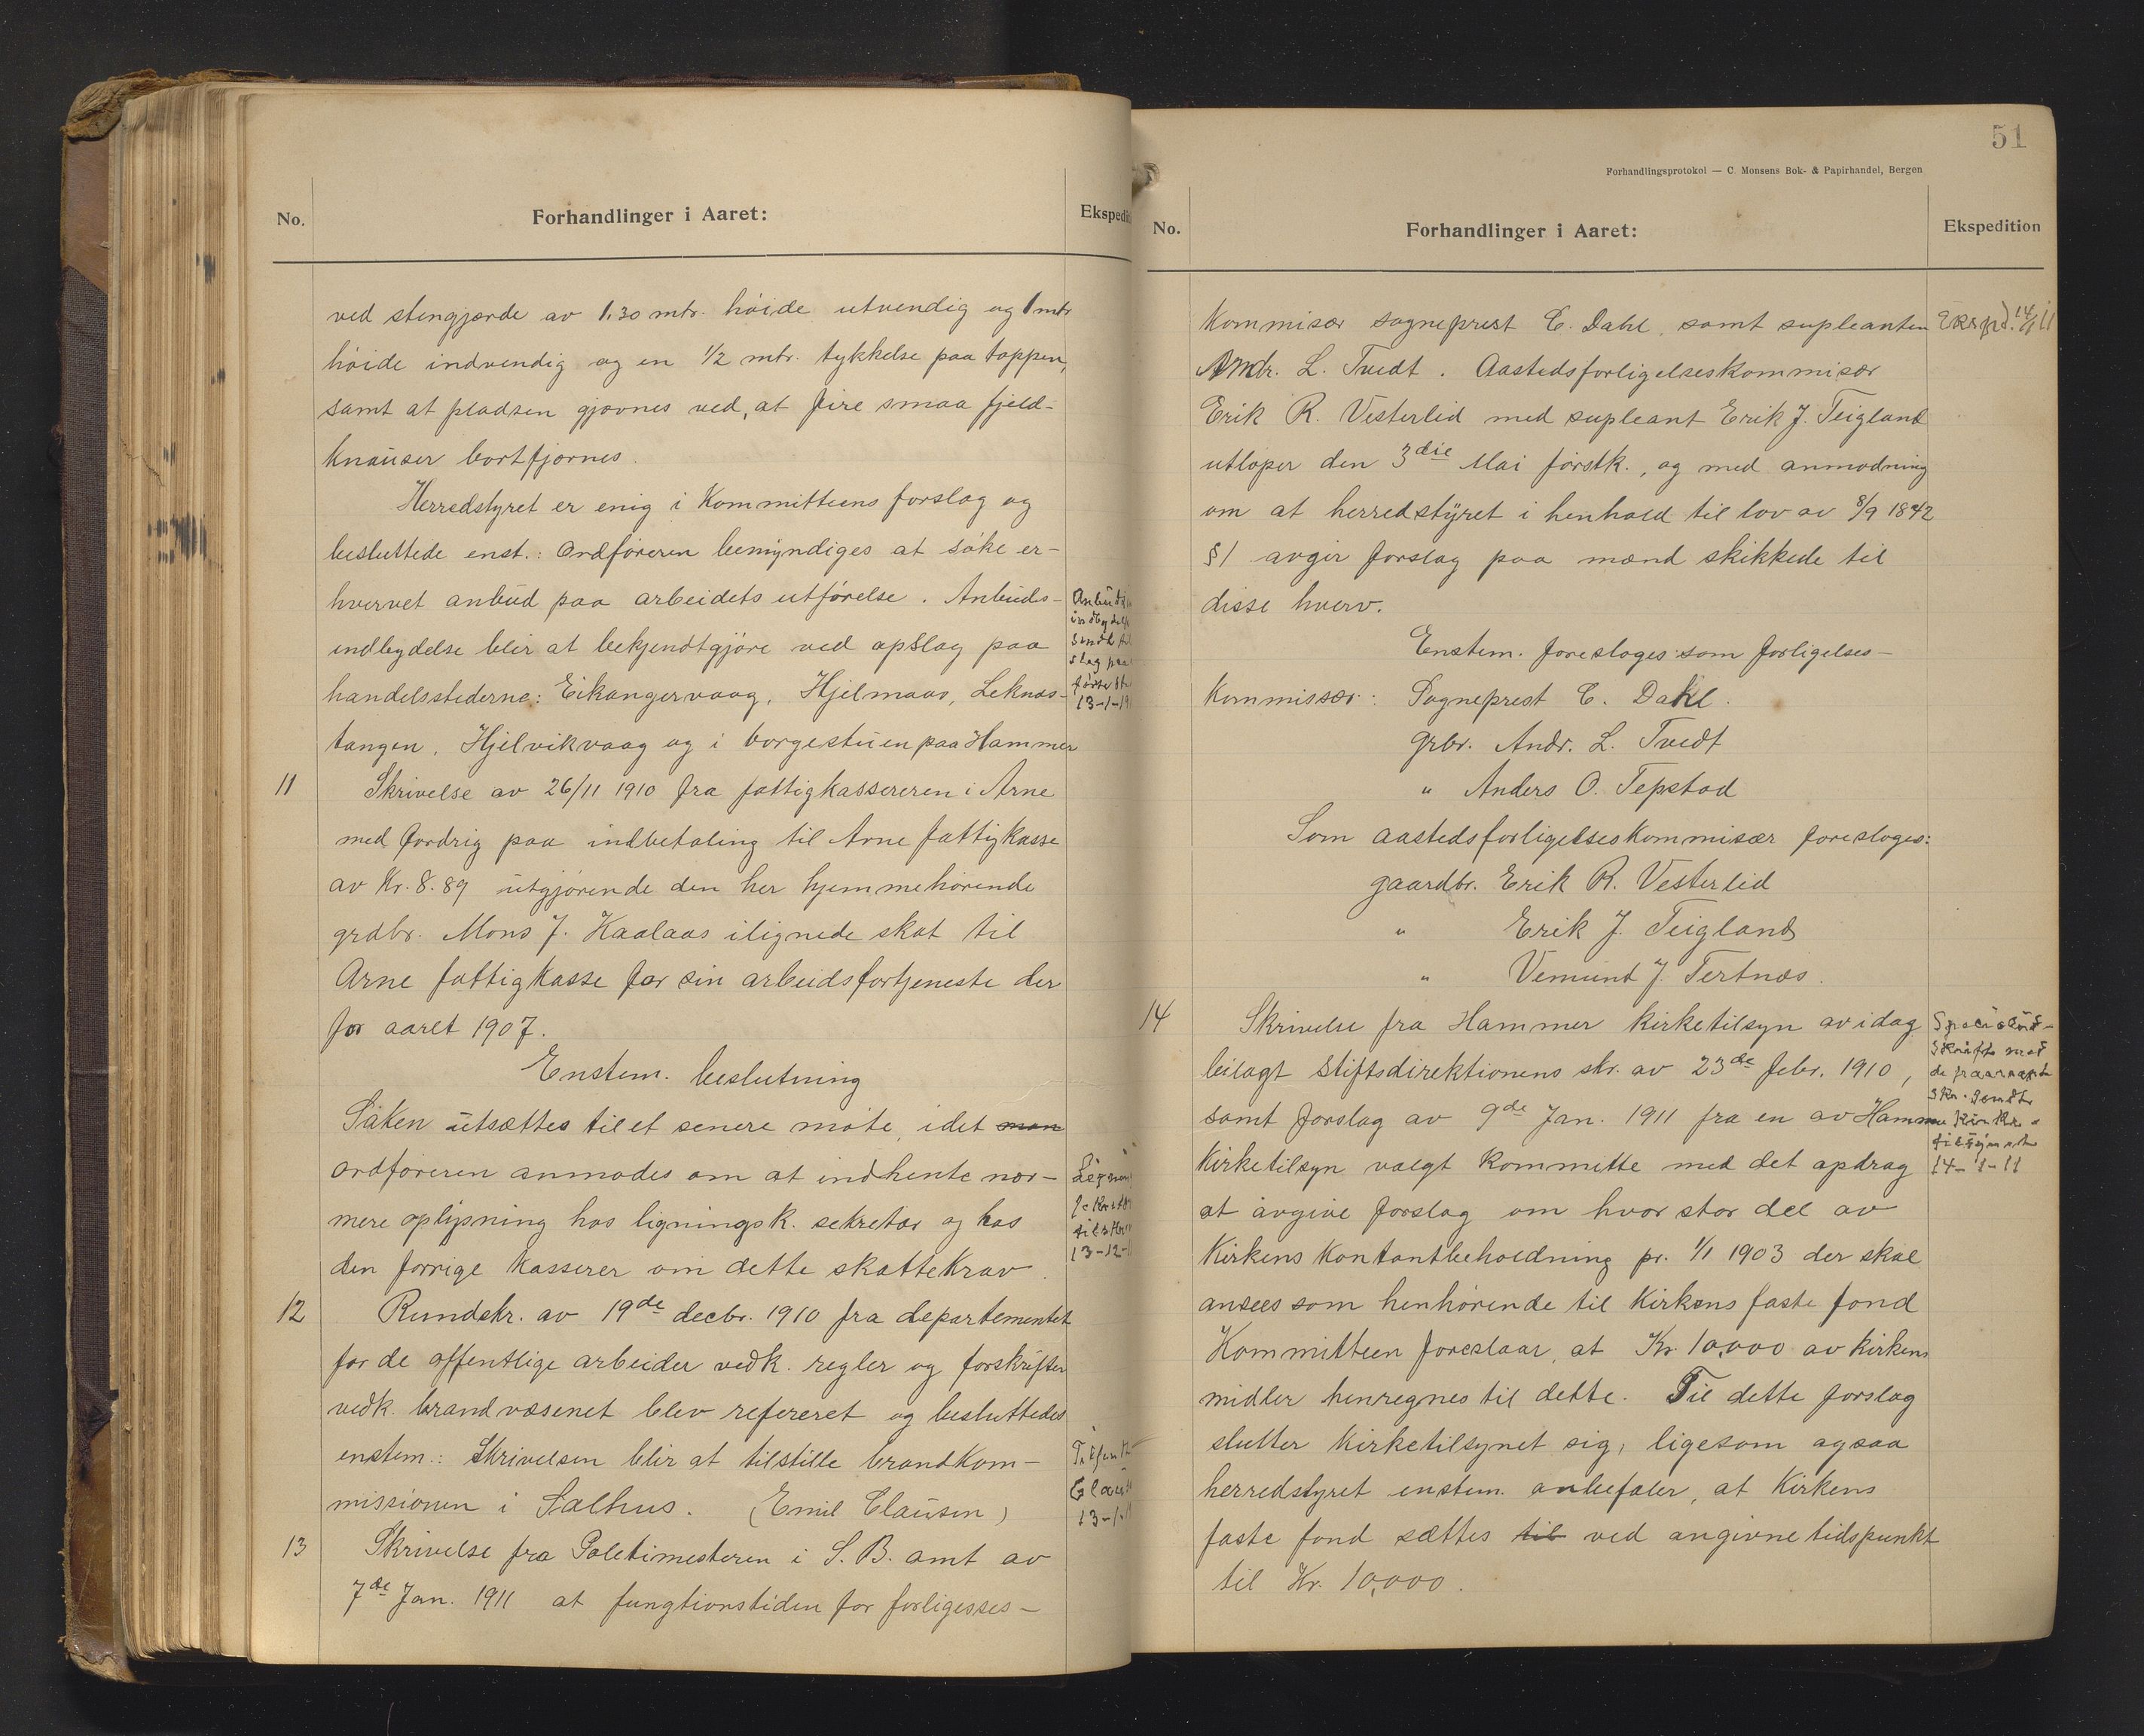 No.
Forhandlinger i Aaret:
ved stengjærde av 1.30 mtr. høide utvendig og 1 mtr
høide indvendig og en 1/2 mtr. tykkelse paa toppen,
samt at pladsen gjævnes ved, at fire smaa fjeld-
knauser bortfjærnes.
Herredstyret er enig i Kommitteens forslag og
besluttede enst.: Ordføreren bemyndiges at søke er-
hvervet anbud paa arbeidets utførelse. Anbuds-
indbydelse blir at bekjendtgjøre ved opslag paa
handelsstederne: Eikangervaag, Hjelmaas, Leknæs-
tangen, Hjelvikvaag og i borgestuen paa Hammer
13-1-19
11
Skrivelse av 26/11 1910 fra fattigkassereren i Arne
med fordrig paa indbetaling til Arne fattigkasse
av Kr. 8.89 utgjørende den her hjemmehørende
grdbr. Mons J. Kaalaas ilignede skat til
Arne fattigkasse for sin arbeidsfortjeneste der
for aaret 1907.
Enstem. beslutning
Saken utsættes til et senere møte, idet man
ordføreren anmodes om at indhente nær-
mere oplysning hos ligningsk. sekretær og hos
den forrige kasserer om dette skattekrav.
13-12-
12
Rundskr. av 19de decbr. 1910 fra departementet
for de offentlige arbeider vedk. regler og forskrifter
vedk. brandvæsenet blev refereret og besluttedes
enstem.: Skrivelsen blir at tilstille brandkom-
missionen i Salhus. (Emil Clausen)
13-1-11
13
Skrivelse fra Politimesteren i S. B. amt av
7de Jan. 1911 at fungtionstiden for forligesses-
51
Forhandlingsprotokol — C. Monsens Bok- & Papirhandel, Bergen
No.
Forhandlinger i Aaret:
Ekspedition
Kommisær sogneprest C. Dahl, samt supleanten
Eksped. 14/1 11
Andr. L. Tvedt. Aastedsforligelseskommisær
Erik R. Vesterlid med supleant Erik J. Teigland
utløper den 3die Mai førstk., og med anmodning
om at herredstyret i henhold til lov av 8/9 1842
§1 avgir forslag paa mænd skikkede til
disse hverv.
Enstem. foresloges som forligelses-
Kommissær: Sogneprest C. Dahl.
grbr. Andr. L. Tvedt
" Anders O. Tepstad
Som aastedsforligelseskommisær foresloges:
gaardbr. Erik R. Vesterlid
" Erik J. Teigland
" Vemund J. Tertnæs.
14
Skrivelse fra Hammer kirketilsyn av idag
bilagt Stiftsdirektionens skr. av 23de febr. 1910,
samt forslag av 9de Jan. 1911 fra en av Hammer
Kirketilsyn valgt kommitte med det opdrag
14-1-11
at avgive forslag om hvor stor del av
Kirkens Kontantbeholdning pr. 1/1 1903 der skal
ansees som henhørende til Kirkens faste fond
Kommitteen foreslaar, at Kr. 10,000 av kirkens
midler henregnes til dette. Til dette forslag
slutter kirketilsynet sig, ligesom ogsaa
herredstyret enstem. anbefaler, at Kirkens
faste fond sættes til ved angivne tidspunkt
til Kr. 10,000.